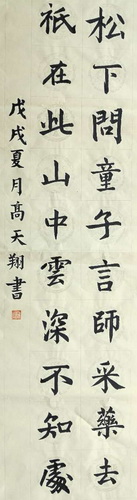 松下問童子言師采藥去
祇在此山中雲深不知處
戊戌夏月高天翔書